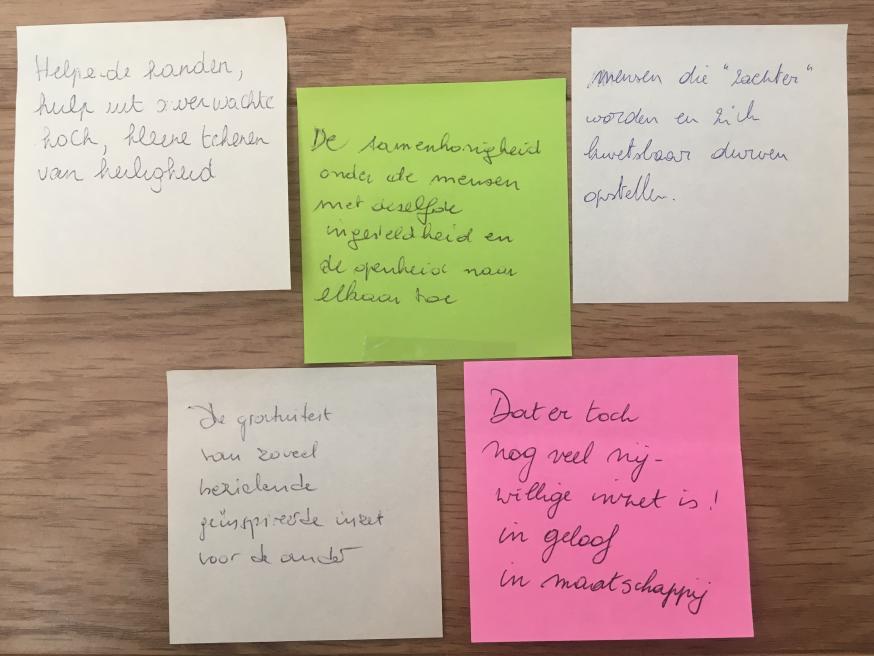 Helpende handen,
hulp uit onverwachte
hoek, kleine tekenen
van heiligheid
De samenhorigheid
onder de mensen
met dezelfde
ingesteldheid en
de openheid naar
elkaar toe
mensen die "zachter"
worden en zich
kwetsbaar durven
opstellen.
De gratuïteit
van zoveel
bezielende
geïnspireerde inzet
voor de ander
Dat er toch
nog veel vrij-
willige inzet is!
in geloof
in maatschappij